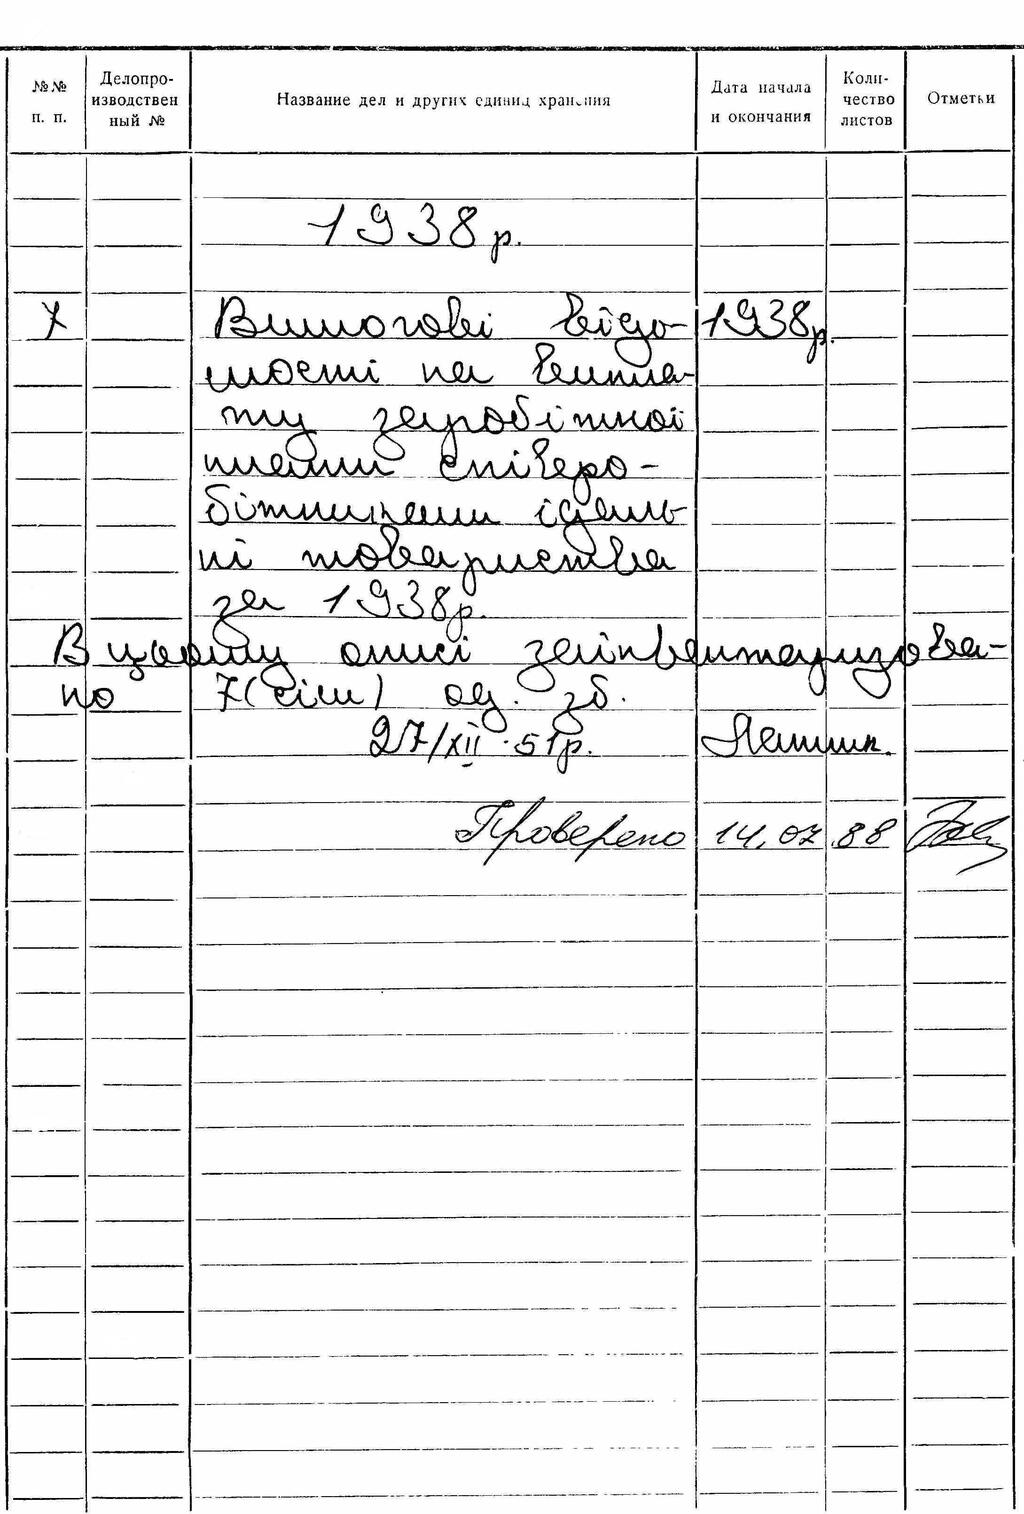 №№ п. п.
Делопроизводствен
ный №
Название дел и других единиц хранения
Дата начала и окончания
Коли-
чество
листов
Отметки
1938 р.
7 Вимогові відо- 1938 р.
мості на випла-
ту заробітної
плати співро-
бітникам їдаль
ні товариства
за 1938 р.
В цьому описі заінвентаризова-
но 7 (сім) од. зб.
27/XII 51 р.
Проверено 14.07.88